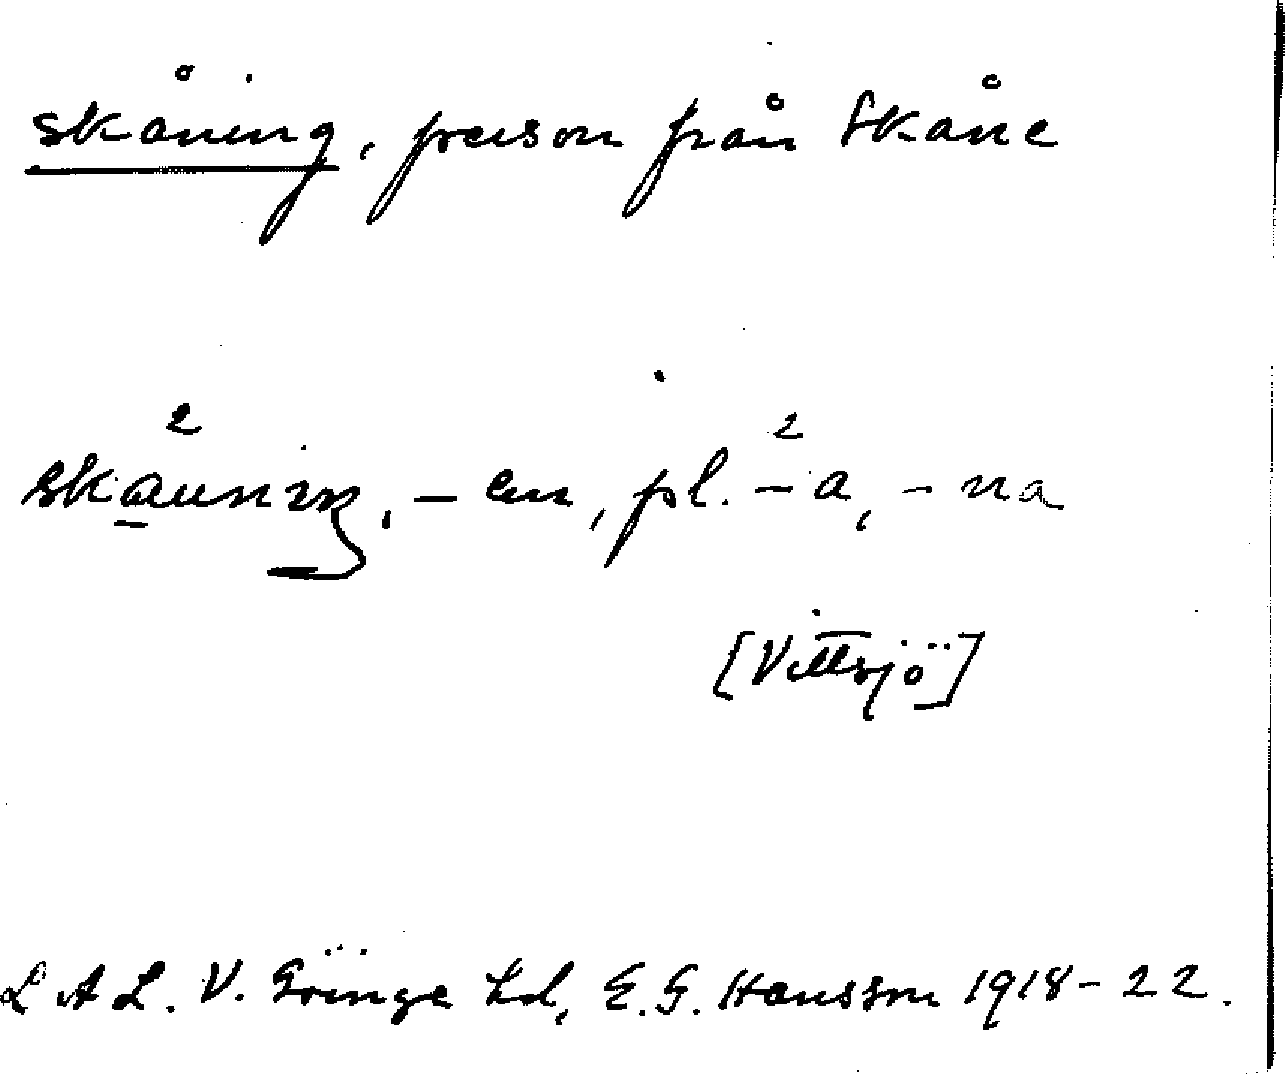 skåning, person från Skåne
skauniŋ, -en, pl. -a, -na
[Vittsjö]
LAL. V. Göinge hd, E.G. Hansson 1918-22.